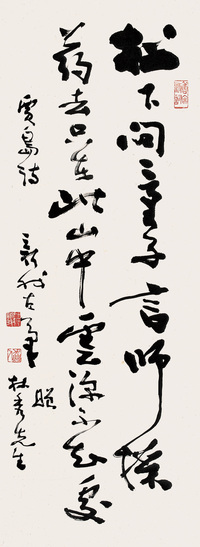 松下问童子言师採
药去只在此山中雲深不知处
贾岛诗
林秀先生